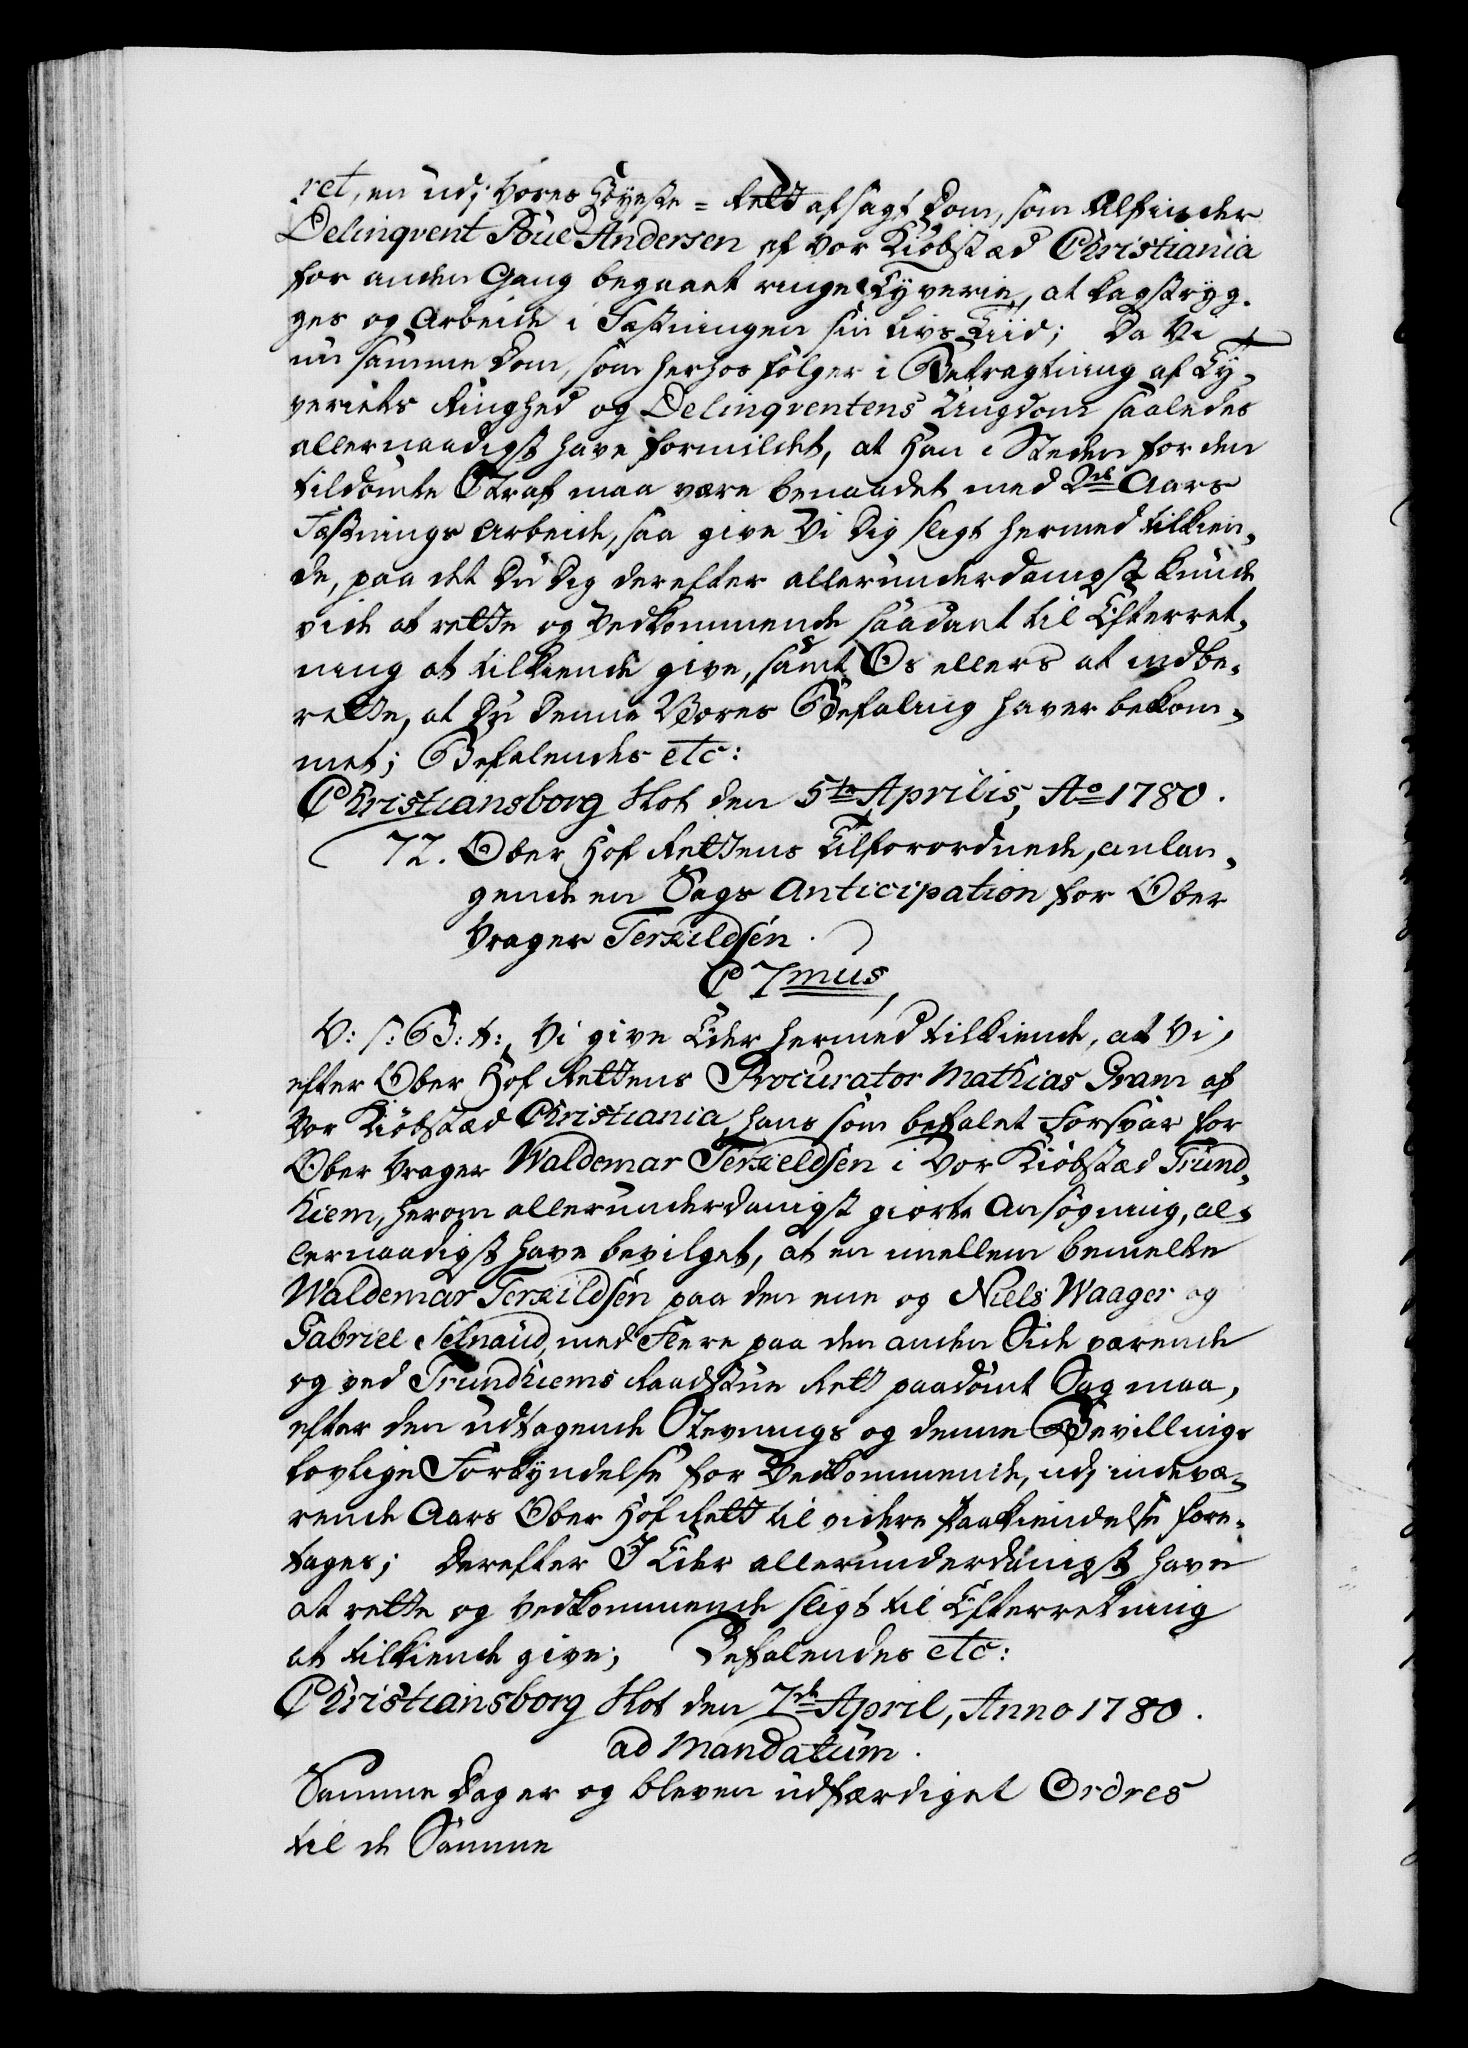 ret, en udj Vores Høyeste=Rett afsagt Dom, som tilfinder
Delinqvent Poul Andersen af Vor Kiøbstæd Christiania
for anden Gang begaaet ringe Tyverie, at kagstryg-
ges og Arbeide i Fæstningen sin Livs Tiid; Da Vi
nu samme Dom, som herhos følger i Betragtning af Ty-
veriets Ringhed og Delinqventens Ungdom saaledes
allernaadigst have formildet, at Han i Steden for den
tildømte Straf maa være benaadet med 2de Aars
Fæstnings Arbeide, saa give Vi Dig sligt hermed tilkien-
de, paa det Du Dig derefter allerunderdanigst kunde
vide at rette og Vedkommende saadant til Efterret-
ning at tilkiende give, samt Os ellers at indbe-
rette, at Du denne Vores Befaling haver bekom-
met; Befalendes etc:
Christiansborg Slot den 5te Aprilis, Ao 1780.
72. Ober Hof Rettens Tilforordnede, anlan-
gende en Sags Anticipation for Ober
Vrager Terkildsen.
C 7mus,
V: S: G: B: t:, Vi give Eder hermed tilkiende, at Vi,
efter Ober Hof Rettens Procurator Mathias Gram af
Vor Kiøbstæd Christiania, hans som befalet Forsvar for
Ober Vrager Waldemar Terkeldsen i Vor Kiøbstæd Trund-
hiem, herom allerunderdanigst giorte Ansøgning, al-
lernaadigst have bevilget, at en imellem bemelte
Waldemar Terkildsen paa den ene og Niels Waager og
Gabriel Selnaud, med Flere paa den anden Side værende
og ved Trundhiems Raadstue Rett paadømt Sag maa,
efter den udtagende Stevnings og denne Bevillings
lovlige Forkyndelse for Vedkommende, udj indevæ-
rende Aars Ober Hof Rett til videre Paakiendelse fore-
tages; Derefter I Eder allerunderdanigst have
at rette og Vedkommende sligt til Efterretning
at tilkiende give; Befalendes etc:
Christiansborg Slot den 7de April, Anno 1780.
ad Mandatum.
Samme Dag er og bleven udfærdiget Ordres
til de Samme